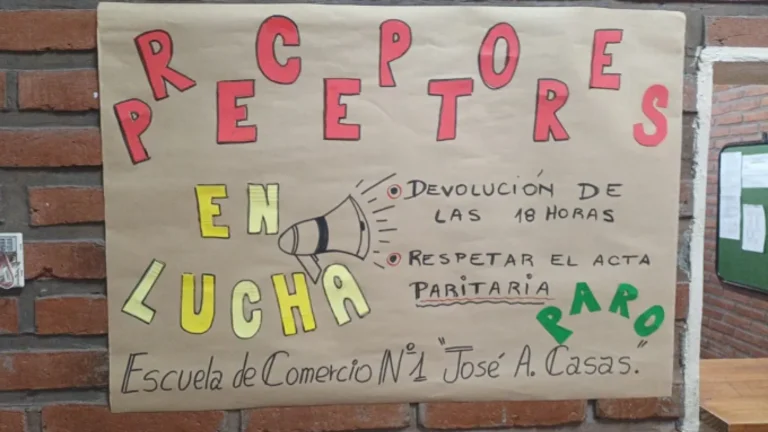 PRECEPTORES
EN
LUCHA
DEVOLUCIÓN DE
LAS 18 HORAS
RESPETAR EL ACTA
PARITARIA
PARO
Escuela de Comercio Nº1 "José A. Casas."